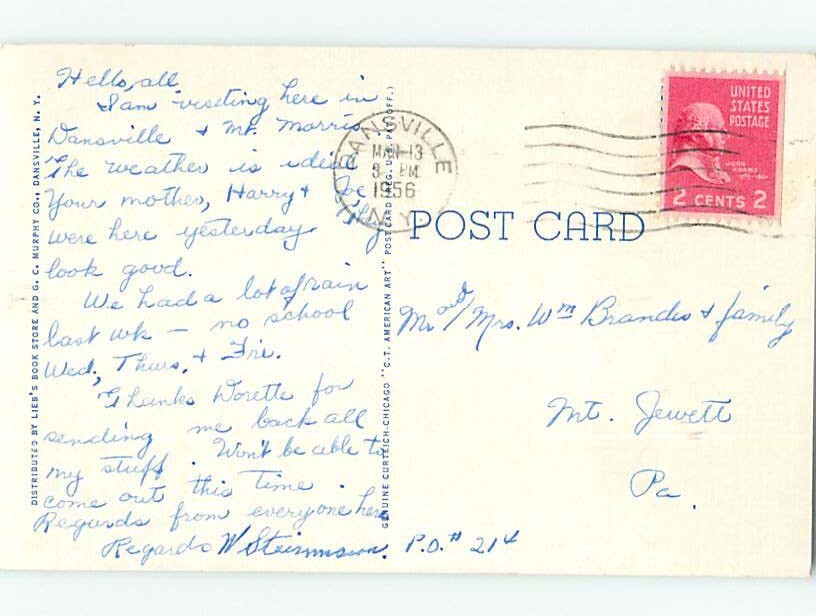 Hello, all
I am visiting here in
Dansville + Mt. Morris
The weather is ideal
Your mother, Harry + Joe, they
were here yesterday
look good.
We had a lot of rain
last wk — no school
Wed, Thurs, + Fri.
Thanks Dorette for
sending me back all
my stuff. Won't be able to
come out this time.
Regards from everyone here
Regards W
P.O. # 214
DISTRIBUTED BY LIEB'S BOOK STORE AND G. C. MURPHY CO., DANSVILLE, N. Y.
GENUINE CURTEICH-CHICAGO "C.T. AMERICAN ART" POST CARD (REG. U.S. PAT. OFF.)
DANSVILLE
MAR 13
PM
1956
N.Y.
UNITED
STATES
POSTAGE
JOHN
ADAMS
2 CENTS 2
POST CARD
Mr and/Mrs. Wm Brandes + family
Mt. Jewett
Pa.